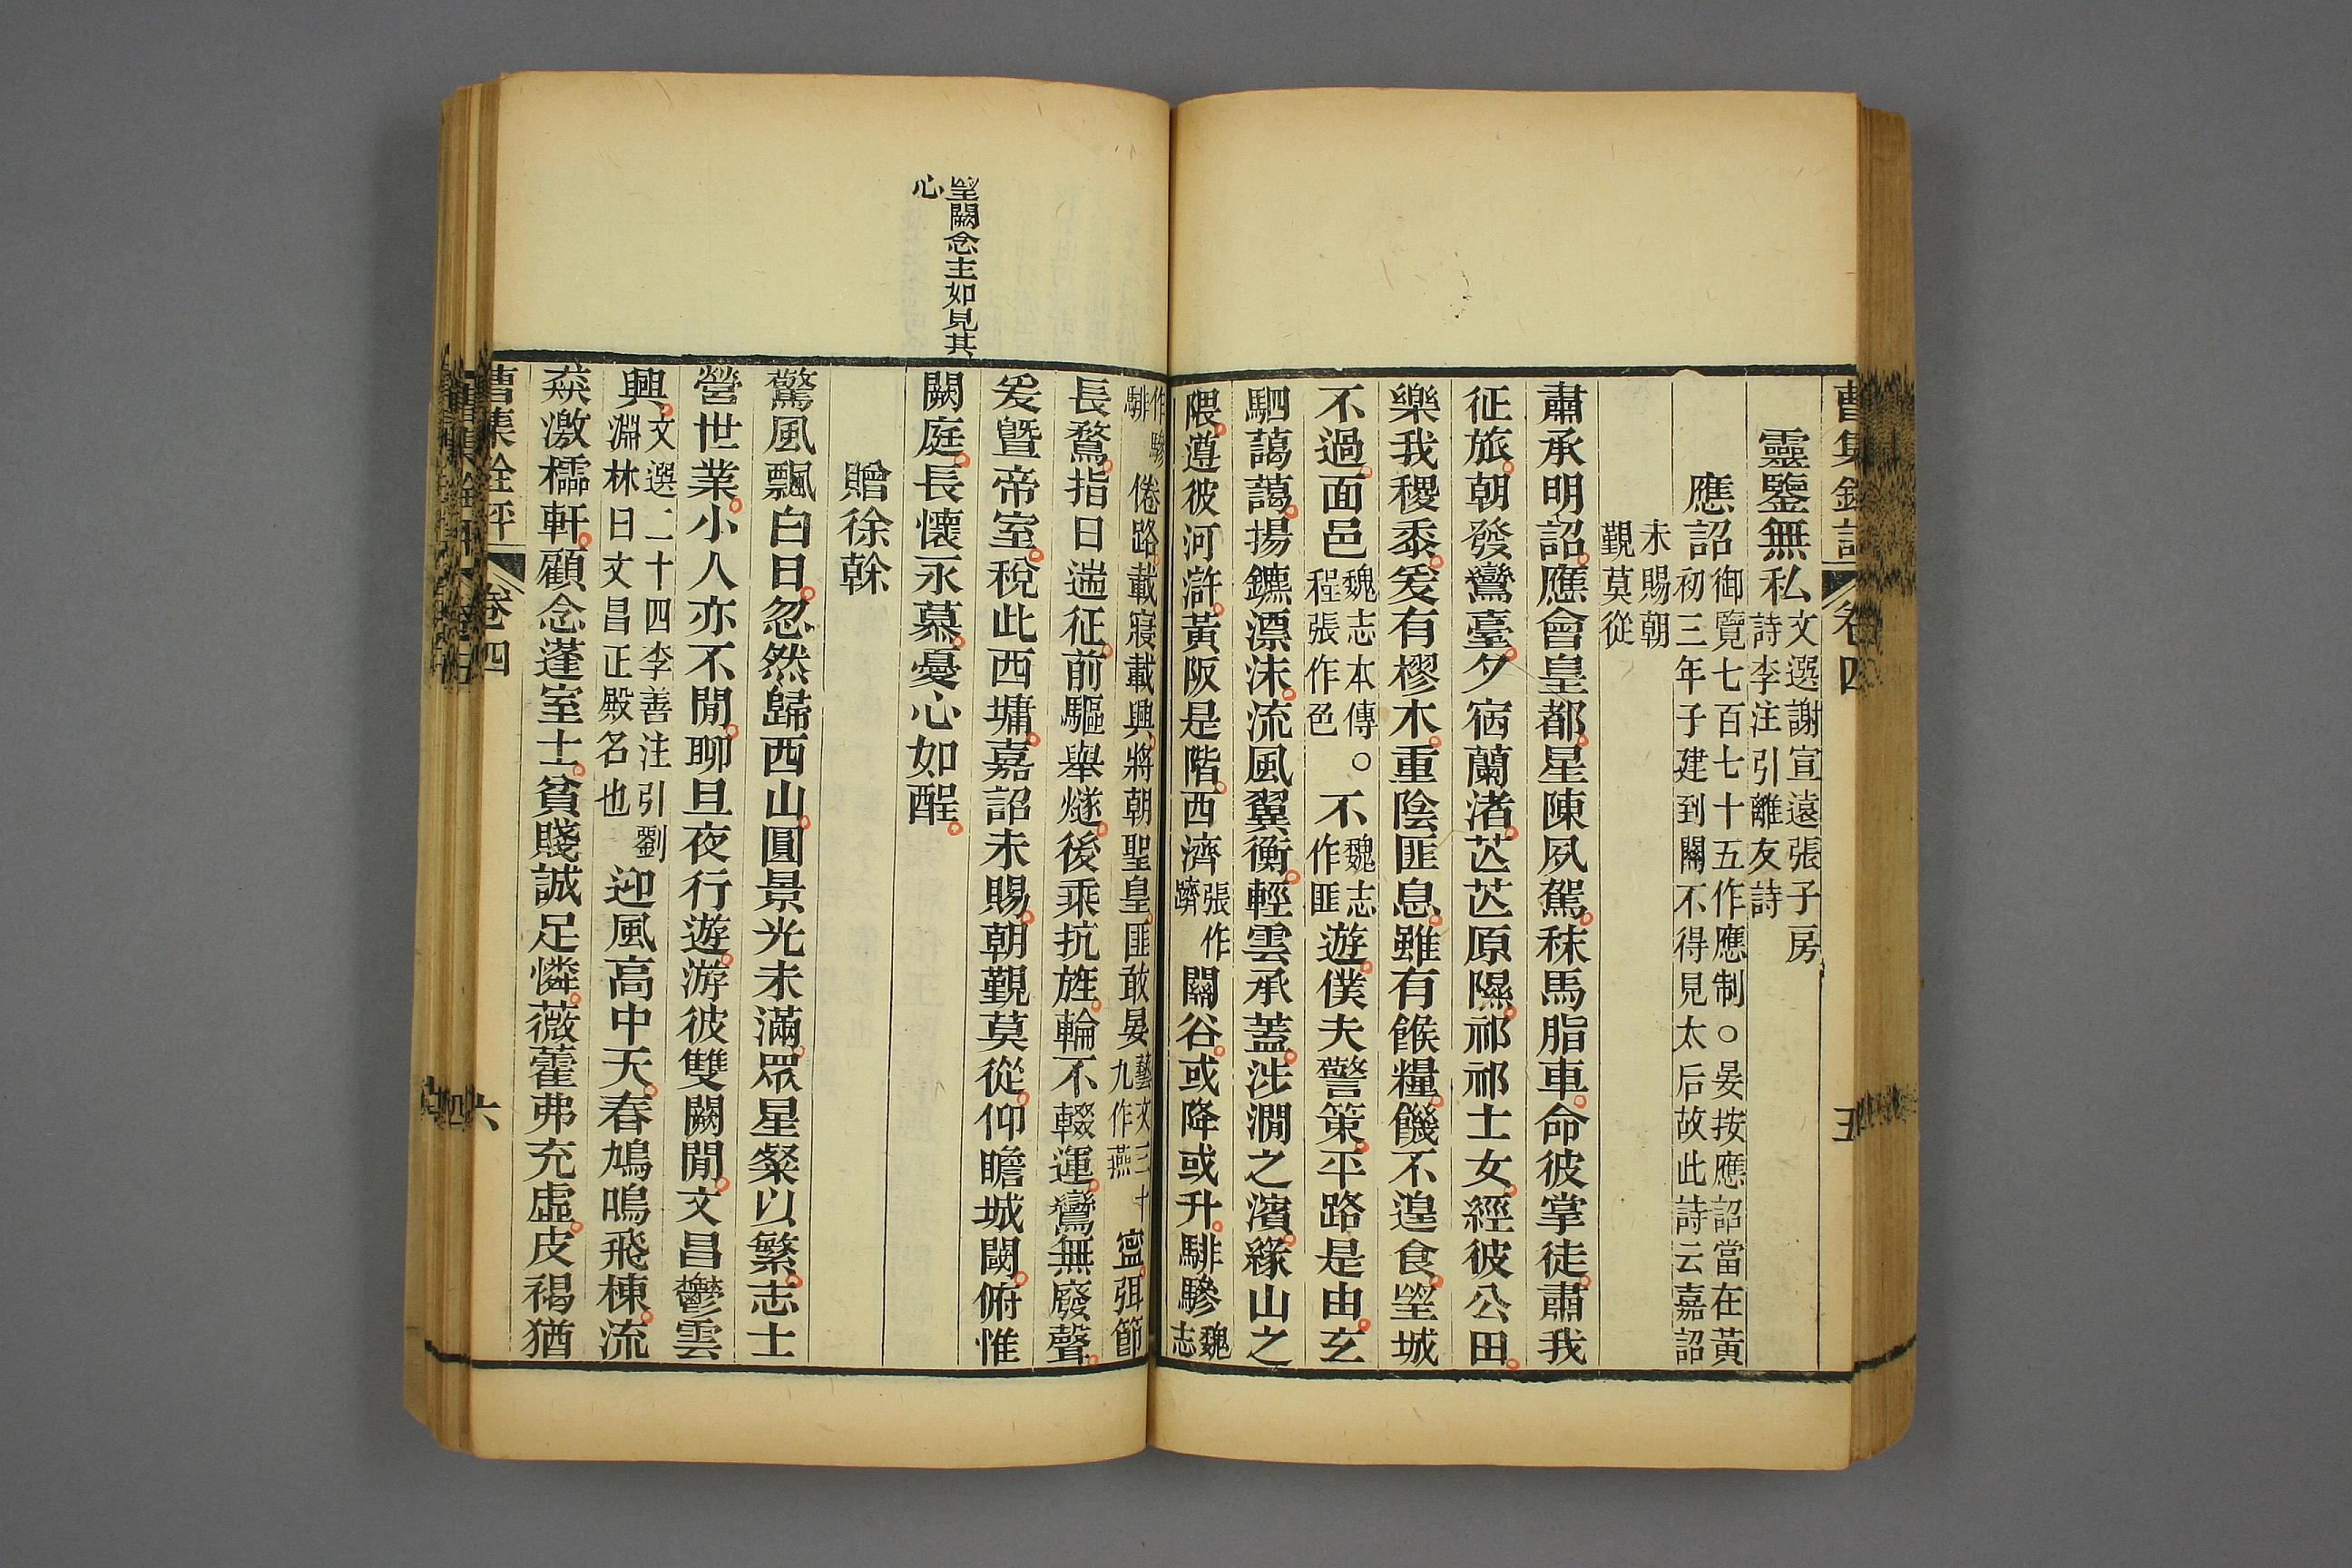 曹集銓評 卷四 五
靈鑒無私文選謝宣遠張子房詩李注引離友詩
應詔御覽七百七十五作應制○晏按應詔當在黃初三年子建到關不得見太后故此詩云嘉詔
未賜朝覲莫從
肅承明詔應會皇都星陳夙駕秣馬脂車命彼掌徒肅我
征旅朝發鸞臺夕宿蘭渚芒芒原隰祁祁士女經彼公田
樂我稷黍爰有樛木重陰匪息雖有餱糧饑不遑食望城
不過面邑魏志本傳程張作邑○不魏志作匪遊僕夫警策平路是由玄
駟藹藹揚鑣漂沫流風翼衡輕雲承蓋涉澗之濱緣山之
隈遵彼河滸黃阪是階西濟張作躋關谷或降或升騑驂魏志
作驂騑倦路載寢載興將朝聖皇匪敢晏藝文三十九作燕寧弭節
長鶩指日遄征前驅舉燧後乘抗旌輪不輟運鸞無廢聲
爰暨帝室稅此西墉嘉詔未賜朝覲莫從仰瞻城閾俯惟
望闕念主如見其
心
闕庭長懷永慕憂心如酲
贈徐幹
驚風飄白日忽然歸西山圓景光未滿眾星粲以繁志士
營世業小人亦不閒聊且夜行遊游彼雙闕閒文昌鬱雲
興文選二十四李善注引劉淵林曰文昌正殿名也迎風高中天春鳩鳴飛棟流
猋激櫺軒顧念蓬室士貧賤誠足憐薇藿弗充虛皮褐猶
曹集銓評 卷四 六